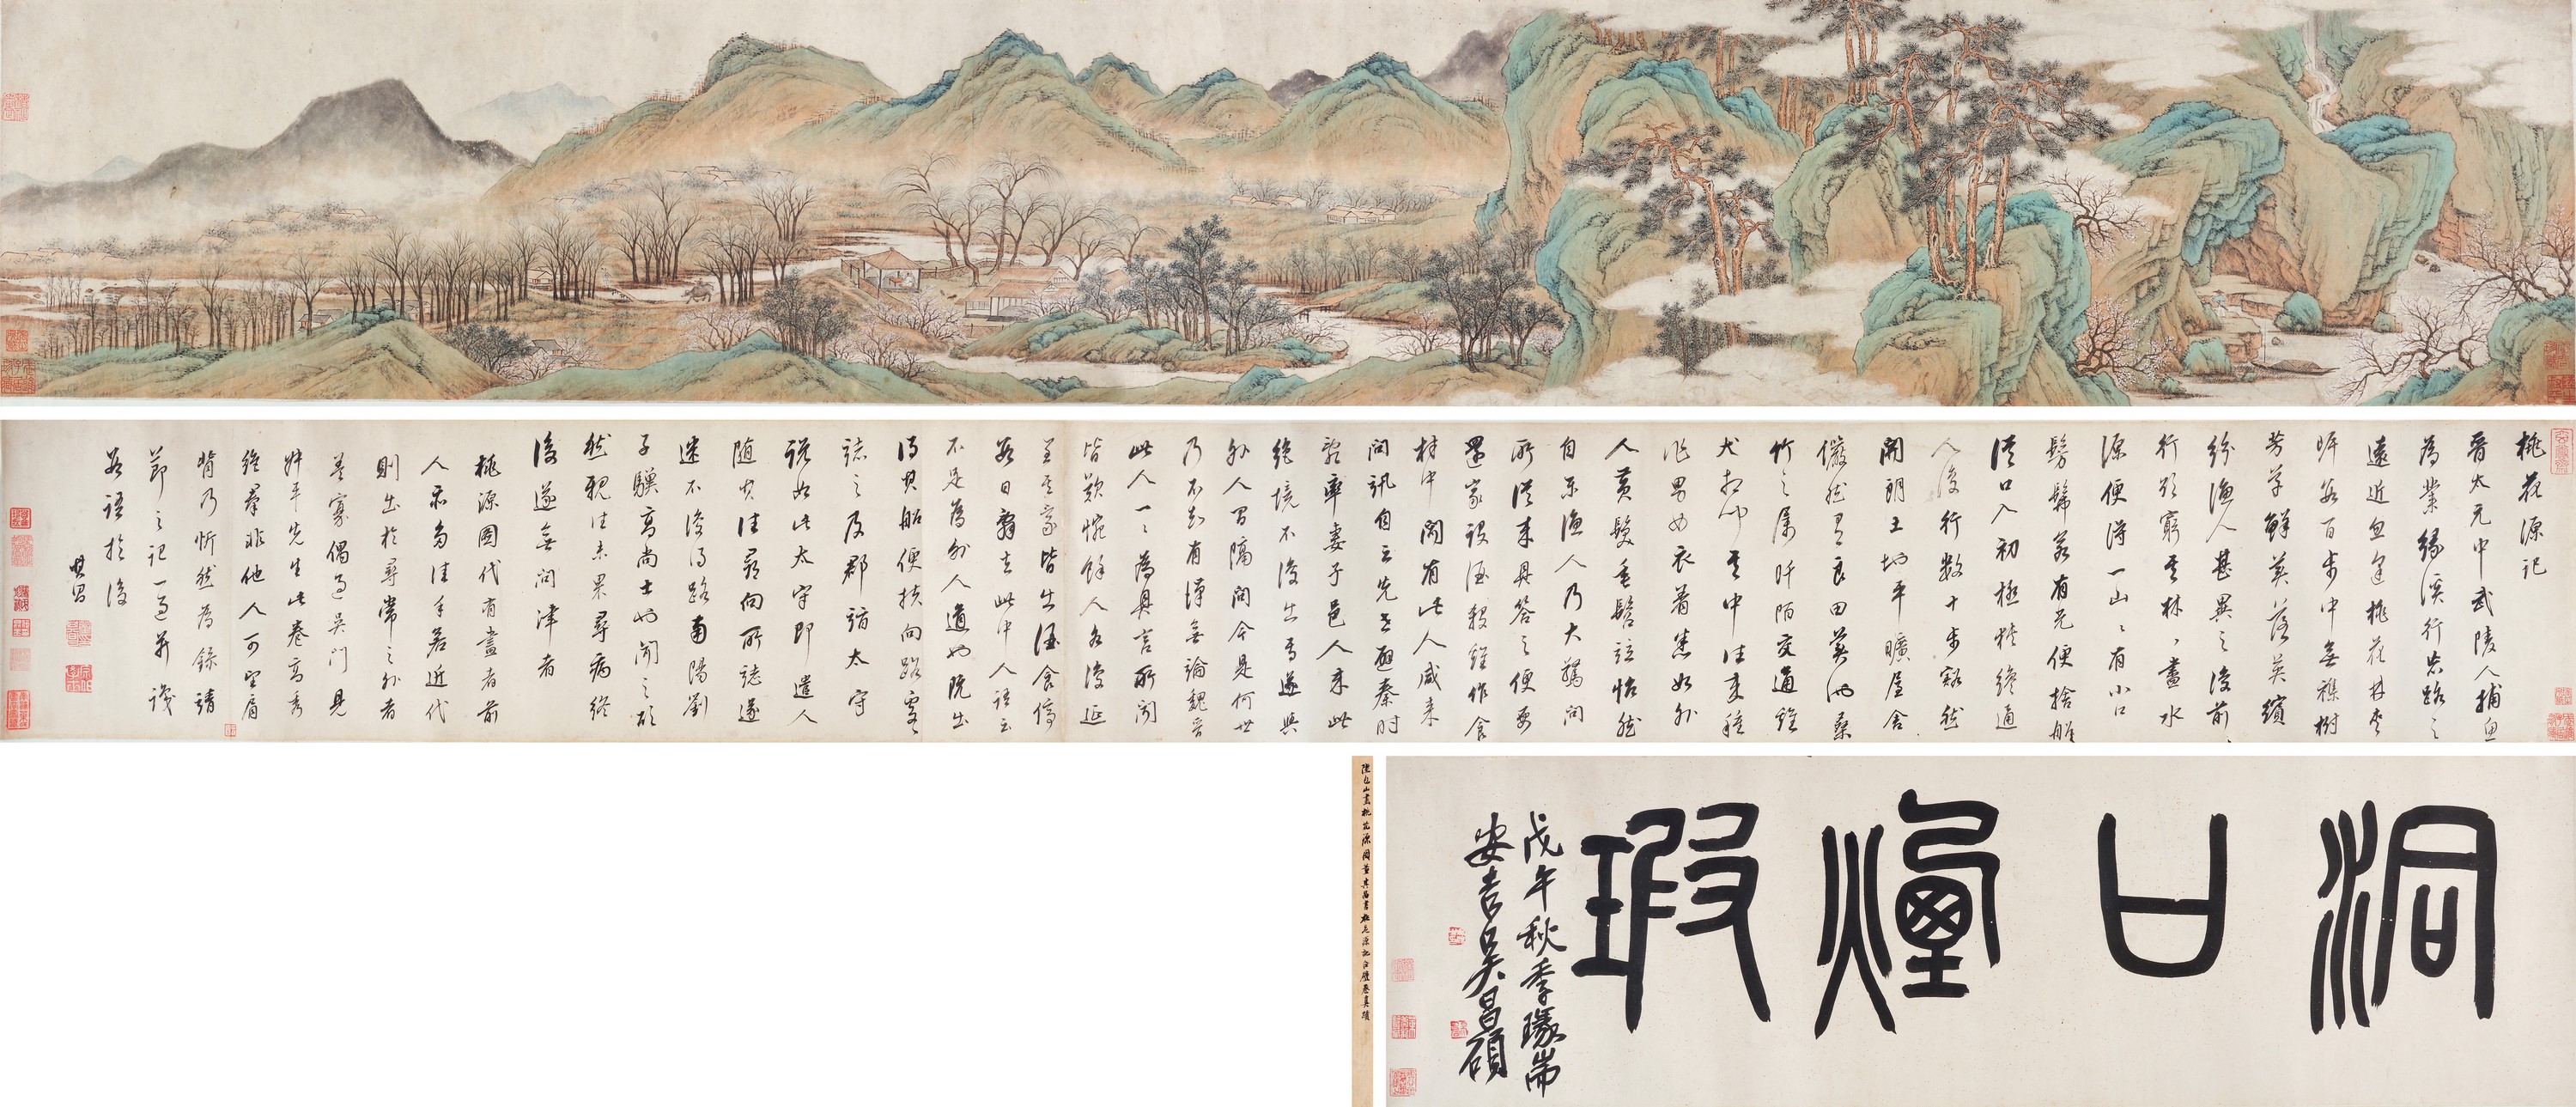 桃花源記
晉太元中武陵人捕魚
為業緣溪行忘路之
遠近忽逢桃花林夾
岸數百步中無雜樹
芳草鮮美落英繽
紛漁人甚異之復前
行欲窮其林〻盡水
源便得一山〻有小口
髣髴若有光便捨船
從口入初極狹纔通
人復行數十步豁然
開朗土地平曠屋舍
儼然有良田美池桑
竹之屬阡陌交通雞
犬相聞其中往來種
作男女衣着悉如外
人黃髮垂髫並怡然
自樂漁人乃大驚問
所從來具答之便要
還家設酒殺雞作食
村中聞有此人咸來
問訊自云先世避秦時
亂率妻子邑人來此
絕境不復出焉遂與
外人間隔問今是何世
乃不知有漢無論魏晉
此人一〻為具言所聞
皆歎惋餘人各復延
至其家皆出酒食停
數日辭去此中人語云
不足為外人道也既出
得其船便扶向路處〻
誌之及郡詣太守
說如此太守即遣人
隨其往尋向所誌遂
迷不復得路南陽劉
子驥高尚士也聞之欣
然親往未果尋病終
後遂無問津者
桃源圖代有畫者前
人亦多佳手若近代
則出於尋常之外者
蓋寡偶過吳門見
叔平先生此卷高秀
絕羣非他人可望肩
背乃忻然為錄靖
節之記一過并識
數語於後
其昌
洞口煙瑕
戊午秋季瑑耑
安吉吳昌碩
陸包山畫桃花源圖董其昌書桃花源記合璧卷真蹟